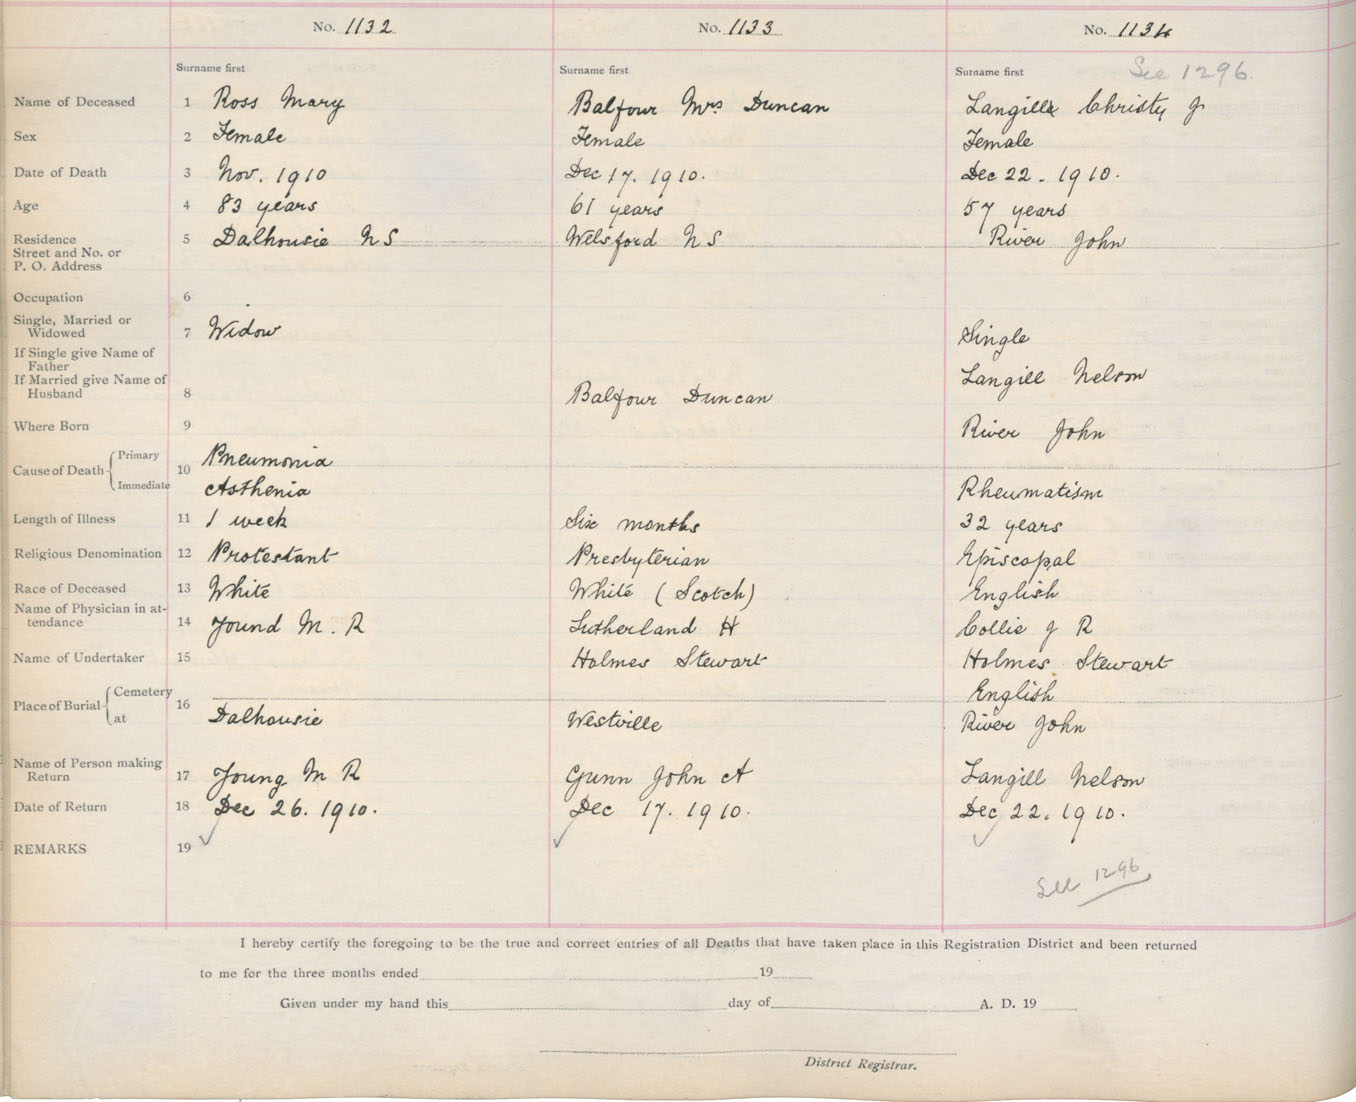 No. 1132 No. 1133 No. 1134
See 1296.
Surname first Surname first Surname first
Name of Deceased 1 Ross Mary Balfour Mrs. Duncan Langill Christy J
Sex 2 Female Female Female
Date of Death 3 Nov. 1910 Dec 17. 1910. Dec 22. 1910.
Age 4 83 years 61 years 57 years
Residence 5 Dalhousie N S Welsford N S River John
Street and No. or
P. O. Address
Occupation 6
Single, Married or
Widowed 7 Widow Single
If Single give Name of
Father Langill Nelson
If Married give Name of
Husband 8 Balfour Duncan
Where Born 9 River John
Cause of Death 10
Primary Pneumonia
Immediate Asthenia Rheumatism
Length of Illness 11 1 week Six months 32 years
Religious Denomination 12 Protestant Presbyterian Episcopal
Race of Deceased 13 White White (Scotch) English
Name of Physician in at-
tendance 14 Yound M. R Sutherland H Collie J R
Name of Undertaker 15 Holmes Stewart Holmes Stewart
Place of Burial 16
Cemetery English
at Dalhousie Westville River John
Name of Person making
Return 17 Young M R Gunn John A Langill Nelson
Date of Return 18 Dec 26. 1910. Dec 17. 1910. Dec 22. 1910.
REMARKS 19
See 1296
I hereby certify the foregoing to be the true and correct entries of all Deaths that have taken place in this Registration District and been returned
to me for the three months ended 19
Given under my hand this day of A. D. 19
District Registrar.